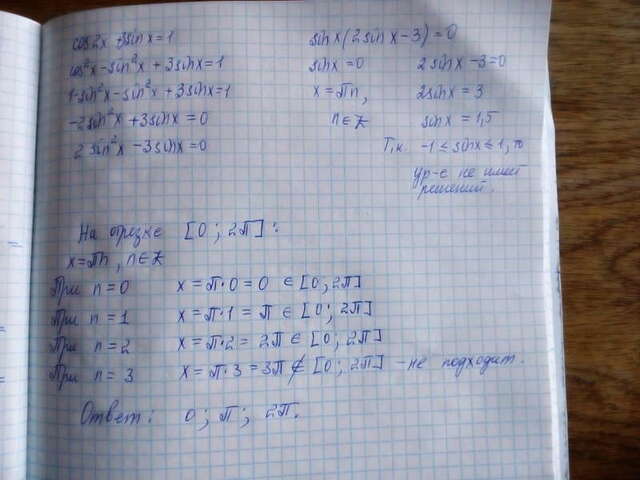 cos2x + 3sinx = 1
cos²x - sin²x + 3sinx = 1
1 - sin²x - sin²x + 3sinx = 1
-2sin²x + 3sinx = 0
2sin²x - 3sinx = 0
sinx(2sinx - 3) = 0
sinx = 0 2sinx - 3 = 0
x = πn, 2sinx = 3
n ∈ Z sinx = 1,5
Т.к. -1 ≤ sinx ≤ 1, то
ур-е не имеет
решений.
На отрезке [0; 2π]:
x = πn, n ∈ Z
При n = 0 x = π·0 = 0 ∈ [0; 2π]
При n = 1 x = π·1 = π ∈ [0; 2π]
При n = 2 x = π·2 = 2π ∈ [0; 2π]
При n = 3 x = π·3 = 3π ∉ [0; 2π] - не подходит.
Ответ: 0; π; 2π.